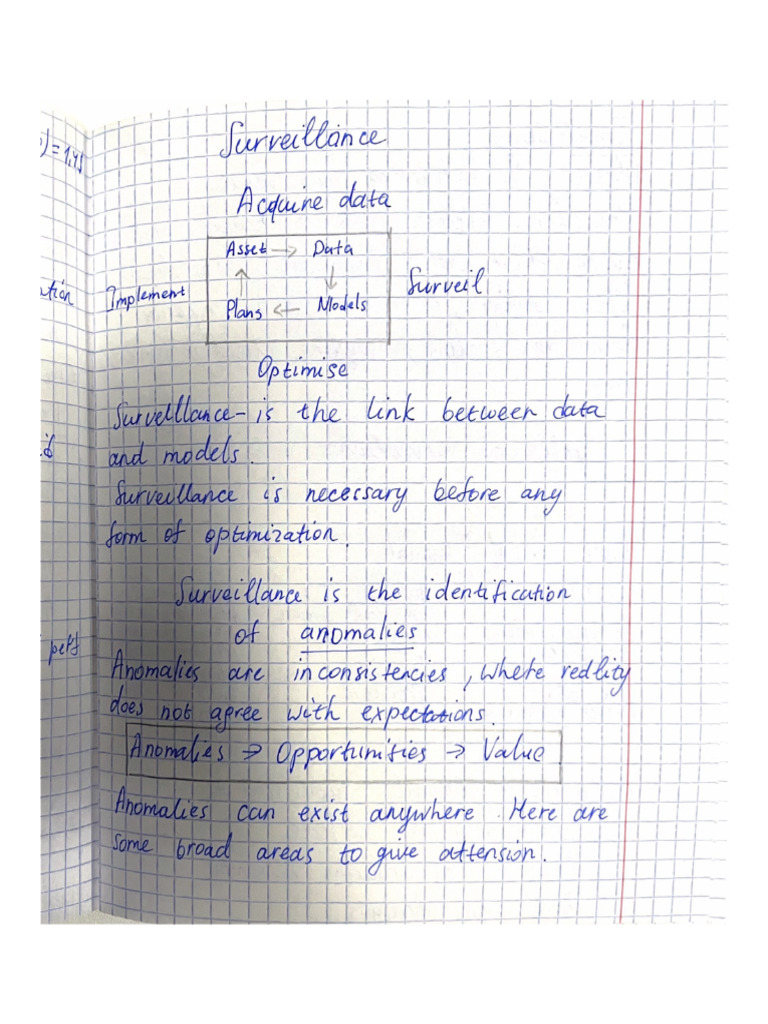 ) = 1,45
Surveillance
Acquire data
Asset → Data
ation Implement Surveil
Plans ← Models
Optimise
Surveillance – is the link between data
and models.
Surveillance is necessary before any
form of optimization.
Surveillance is the identification
of anomalies
Anomalies are inconsistencies, where redlity
does not agree with expectations.
Anomalies → Opportunities → Value
Anomalies can exist anywhere. Here are
some broad areas to give attension.